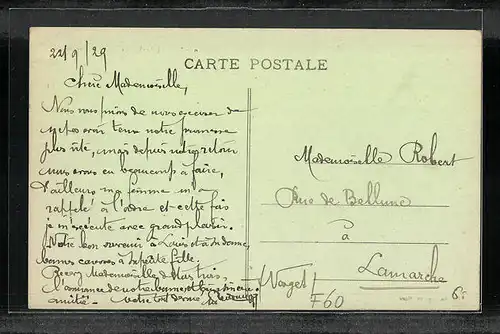 22/9/29
CARTE POSTALE
Chère Mademoiselle,
Nous vous prions de nous excuser de
ne pas avoir tenu notre promesse
plus tôt, mais depuis notre retour
nous avons eu beaucoup à faire,
D'ailleurs ma femme m'a
rappelé à l'ordre et cette fois
je m'exécute avec grand plaisir.
Notre bon souvenir à Louis et à sa dame,
bonnes caresses à la petite fille.
Recevez Mademoiselle
l'assurance de notre bonne et
amitié. Votre tout dévoué
Mademoiselle Robert
Rue de Bellune
à
Lamarche
(Vosges)
F60